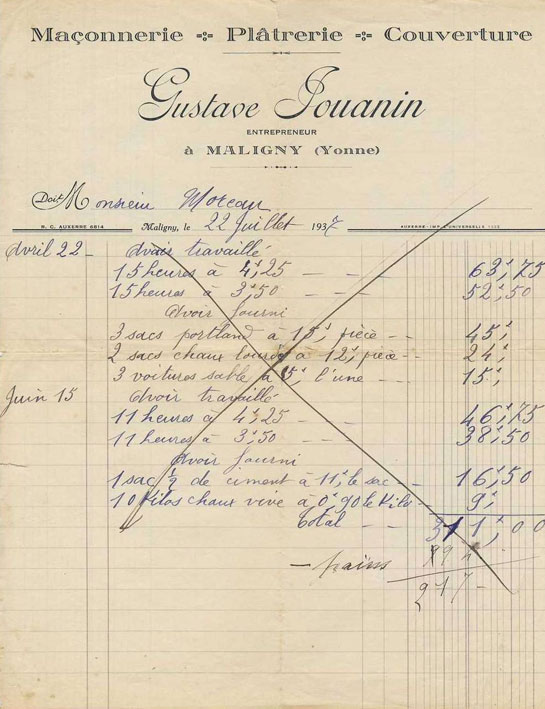 Maçonnerie Plâtrerie Couverture
Gustave Jouanin
ENTREPRENEUR
à MALIGNY (Yonne)
Doit Monsieur Moreau
R. C. AUXERRE 6814 Maligny, le 22 Juillet 1937 AUXERRE-IMP. UNIVERSELLE
Avril 22 - Avoir travaillé
15 heures à 4f,25 - - - 63f,75
15 heures à 3f,50 - - - 52f,50
Avoir fourni
3 sacs portland à 15f, pièce - - 45f,
2 sacs chaux lourde à 12f, pièce - - 24f,
3 voitures sable à 5f, l'une - - 15f,
Juin 15 Avoir travaillé
11 heures à 4f,25 - - - 46f,75
11 heures à 3f,50 - - - 38f,50
Avoir fourni
1 sac 1/2 de ciment à 11f, le sac - - 16f,50
10 Kilos chaux vive à 0f,90 le Kilo - 9f,
Total - - 311f,00
217 -